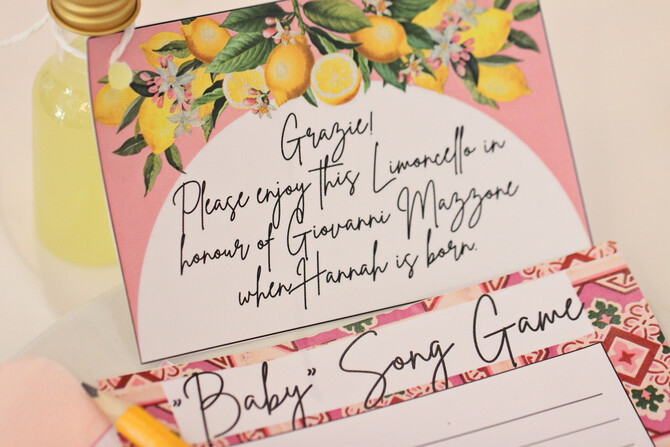 Grazie!
Please enjoy this Limoncello in
honour of Giovanni Mazzone
when Hannah is born.
"Baby" Song Game